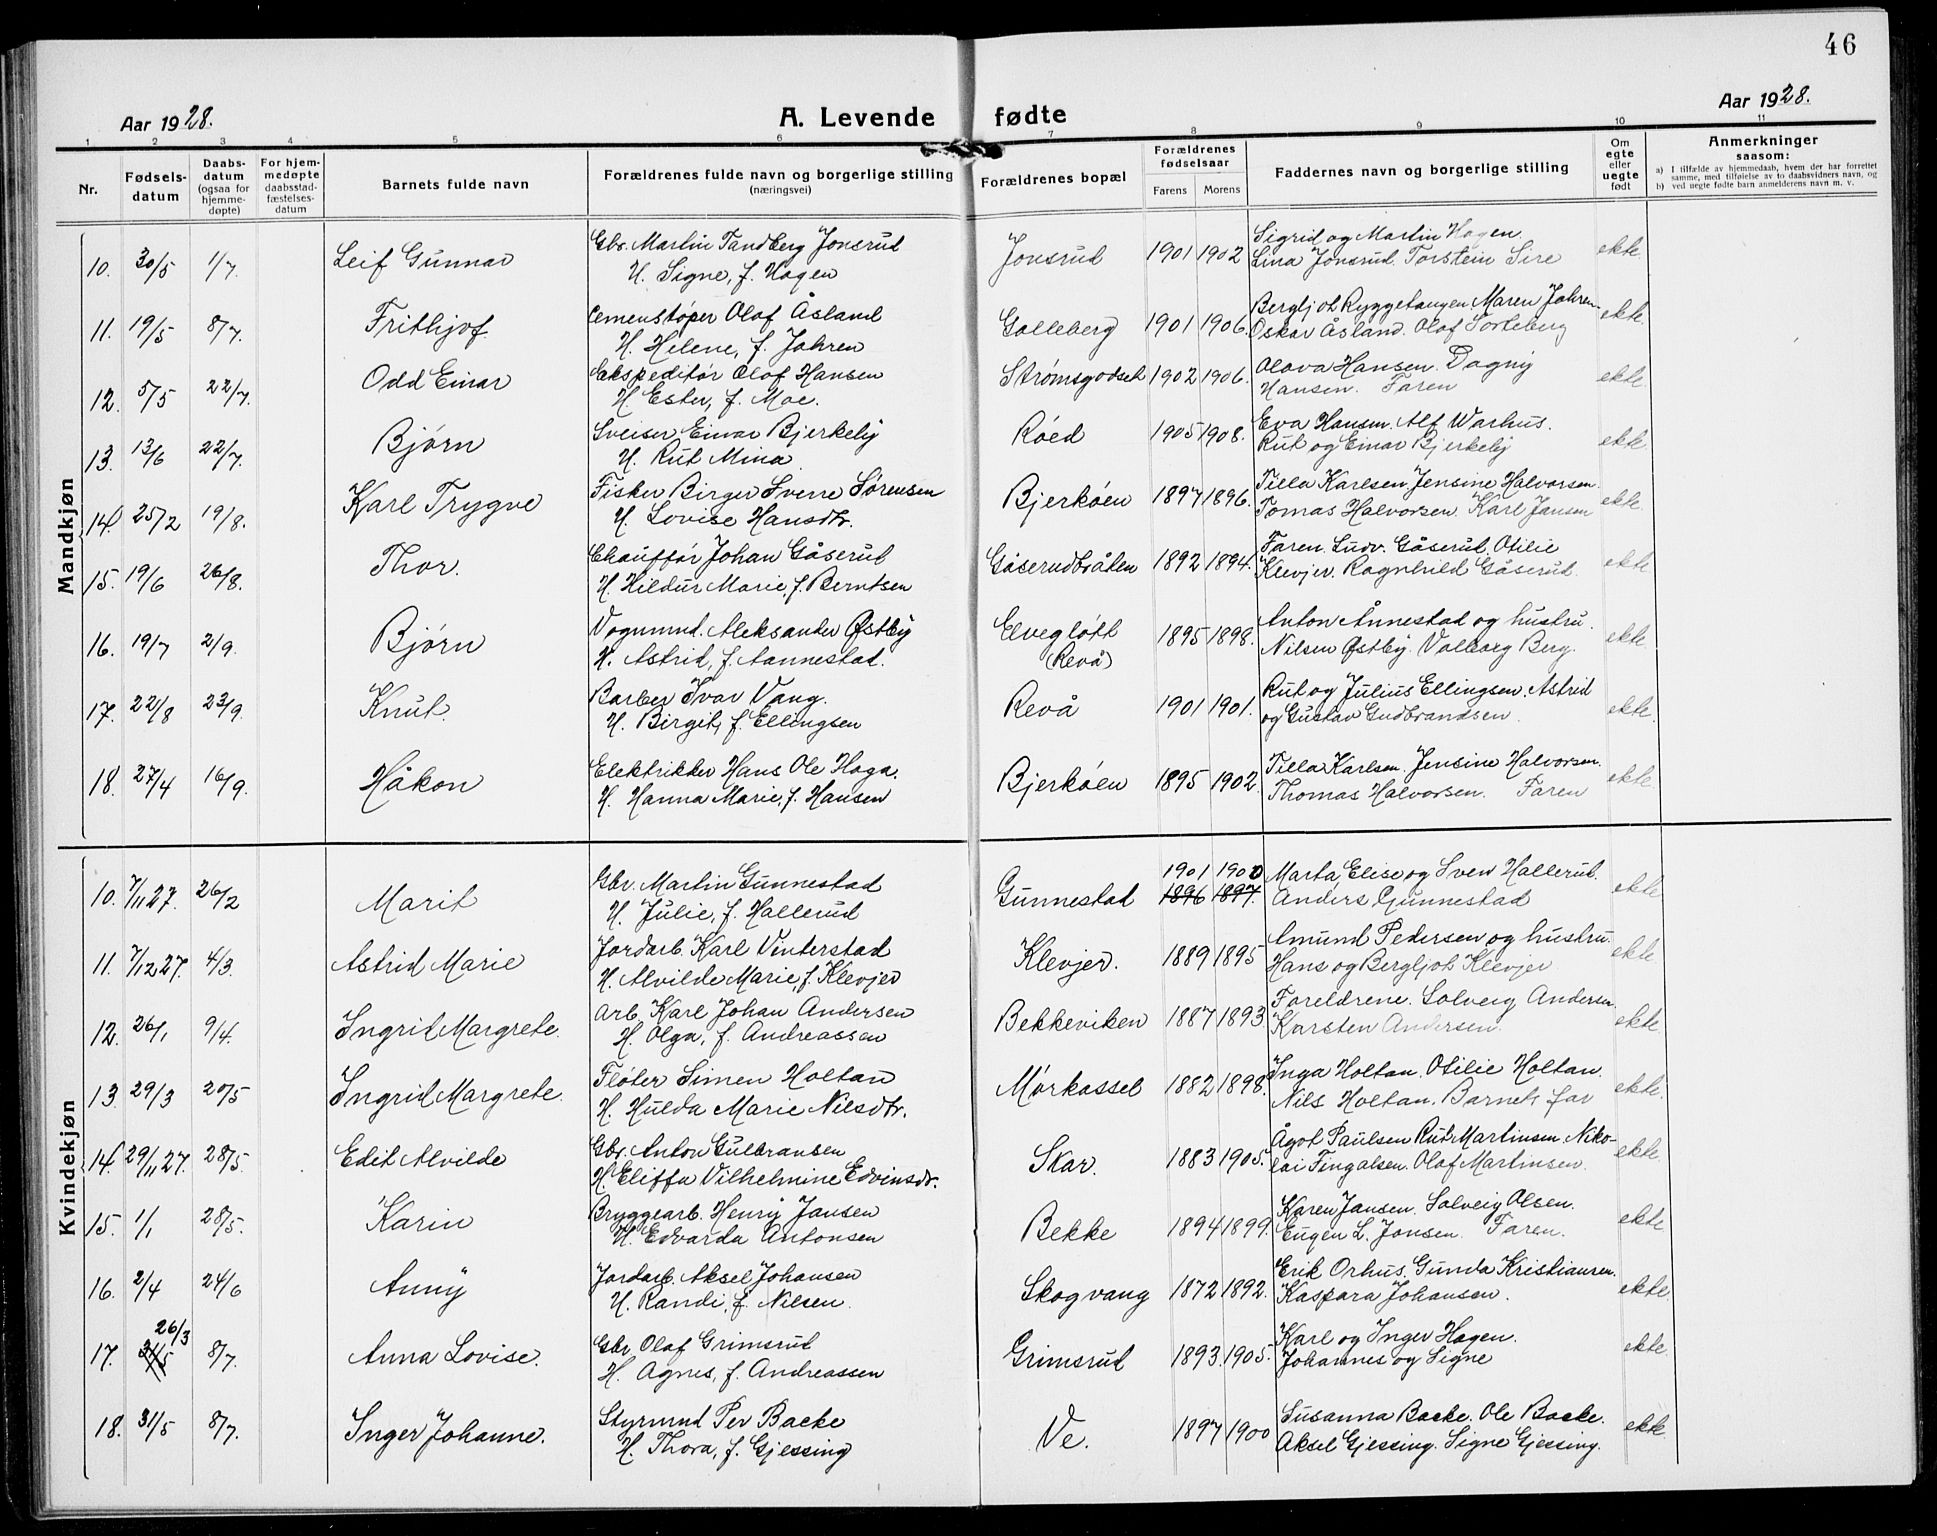 46
Aar 1928.
A. Levende fødte
Aar 1928.
1 2 3 4 5 6 7 8 9 10 11
Nr.
Fødsels-
datum
Daabs-
datum
(ogsaa for
hjemme-
døpte)
For hjem-
medøpte
daabsstad-
fæstelses-
datum
Barnets fulde navn
Forældrenes fulde navn og borgerlige stilling
(næringsvei)
Forældrenes bopæl
Forældrenes
fødselsaar
Farens Morens
Faddernes navn og borgerlige stilling
Om
egte
eller
uegte
født
Anmerkninger
saasom:
a) I tilfælde av hjemmedaab, hvem der har forrettet
samme, med tilføielse av to daabsvidners navn, og
b) ved uegte fødte barn anmelderens navn m. v.
Mandkjøn
10. 30/5 1/7. Leif Gunnar Gbr. Martin Tandberg Jonsrud Jonsrud 1901 1902 Sigrid og Martin Hagen ekte.
H. Signe, f. Hagen Lina Jonsrud. Torstein Sire
11. 19/5 8/7. Frithjof Cemenstøper Olaf Åsland Golleberg 1901 1906. Bergljot Ryggetangen Maren Jahren ekte.
H. Helene, f. Jahren Oskar Åsland. Olaf Sorteberg
12. 5/5 22/7. Odd Einar Ekspeditør Olof Hansen Strømsgodset 1902 1906. Olava Hansen. Dagny ekte
H. Ester, f. Moe. Hansen. Faren
13. 13/6 22/7. Bjørn Sveiser Einar Bjerkely Røed 1905 1908. Eva Hansen. Alf Warhus. ekte
H. Rut Mina Rut og Einar Bjerkely
14. 25/2 19/8. Karl Trygve Fisker Birger Sverre Sørensen Bjerkøen 1897 1896. Tilla Karlsen Jensine Halvorsen. ekte.
H. Lovise Hansdtr. Tomas Halvorsen. Karl Jansen
15. 19/6 26/8. Thor. Chauffør Johan Gåserud Gåserudbråten 1892 1894. Faren. Ludv. Gåserud. Otilie ekte
H. Hildur Marie, f. Berntsen Klevjer. Ragnhild Gåserud.
16. 19/7 2/9. Bjørn Vognmnd. Aleksander Østby Elvegløtt 1895 1898. Anton Ånnestad og hustru. ekte
H. Astrid, f. Aannestad. (Revå) Nilsen Østby. Valborg Berg.
17. 22/8 23/9. Knut. Barber Ivar Vang. Revå 1901 1901. Rut og Julius Ellingsen. Astrid ekte.
H. Birgit, f. Ellingsen og Gustav Gudbrandsen.
18. 27/4 16/9. Håkon Elektriker Hans Ole Haga. Bjerkøen 1895 1902. Tilla Karlsen. Jensine Halvorsen. ekte.
H. Hanna Marie, f. Hansen Thomas Halvorsen. Faren
Kvindekjøn
10. 7/11 27. 26/2 Marit Gbr. Martin Gunnestad Gunnestad 1901 1900 Marta, Elise og Sven Hallerud. ekte
H. Julie, f. Hallerud 1896 1897. Anders Gunnestad
11. 7/12 27. 4/3. Astrid Marie Jordarb. Karl Vinterstad Klevjer. 1889 1895 Amund Pedersen og hustru. ekte.
H. Alvilde Marie, f. Klevjer Hans og Bergljot Klevjer
12. 26/1 9/4. Ingrid Margrete. Arb. Karl Johan Andersen Bekkeviken 1887 1893. Foreldrene. Solveig Andersen ekte
H. Olga, f. Andreassen Karsten Andersen.
13. 29/3 20/5 Ingrid Margrete. Fløter Simen Holtan Mørkassel 1882 1898. Inga Holtan. Otilie Holtan. ekte.
H. Hulda Marie Nilsdtr. Nils Holtan. Barnets far
14. 29/11 27. 28/5. Edit Alvilde Gbr. Anton Gulbransen Skar. 1883 1905. Ågot Paulsen Rut Martinsen Niko- ekte.
H. Eliffa Vilhelmine Edvinsdtr. lai Fingalsen. Olaf Martinsen.
15. 1/1 28/5. Karin Bryggearb. Henry Jansen Bekke 1894 1899. Karen Jansen. Solveig Olsen. ekte
H. Edvarda Antonsen Eugen L. Jonsen. Faren.
16. 2/4 24/6 Anny Jordarb. Aksel Johansen Skogvang 1872 1892. Erik Orhus. Gunda Kristiansen. ekte.
H. Randi, f. Nilsen. Kaspara Johansen.
17. 26/3 31/5 8/7. Anna Lovise. Gbr Olaf Grimsrud Grimsrud 1893. 1905. Karl og Inger Hagen. ekte.
H. Agnes, f. Andreassen Johannes og Signe
18. 31/5 8/7. Inger Johanne. Styrmnd Per Backe Ve. 1897 1900 Susanna Backe. Ole Backe. ekte.
H. Thora, f. Gjessing Aksel Gjessing. Signe Gjessing.